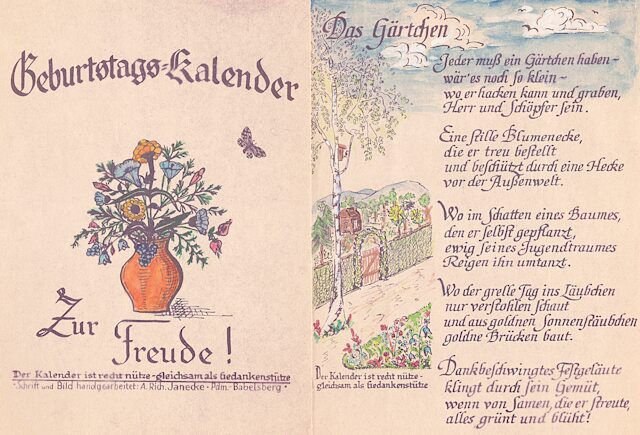 Geburtstags-Kalender
Zur
Freude!
Der Kalender ist recht nütze - gleichsam als Gedankenstütze
· Schrift und Bild handgearbeitet: A. Rich. Janecke · Pdm.-Babelsberg ·
Das Gärtchen
Jeder muß ein Gärtchen haben –
wär' es noch so klein –
wo er hacken kann und graben,
Herr und Schöpfer sein.
Eine stille Blumenecke,
die er treu bestellt
und beschützt durch eine Hecke
vor der Außenwelt.
Wo im Schatten eines Baumes,
den er selbst gepflanzt,
ewig seines Jugendtraumes
Reigen ihn umtanzt.
Wo der grelle Tag ins Läubchen
nur verstohlen schaut
und aus goldnen Sonnenstäubchen
goldne Brücken baut.
Dankbeschwingtes Festgeläute
klingt durch sein Gemüt,
wenn von Samen, die er streute,
alles grünt und blüht!
Der Kalender ist recht nütze -
gleichsam als Gedankenstütze